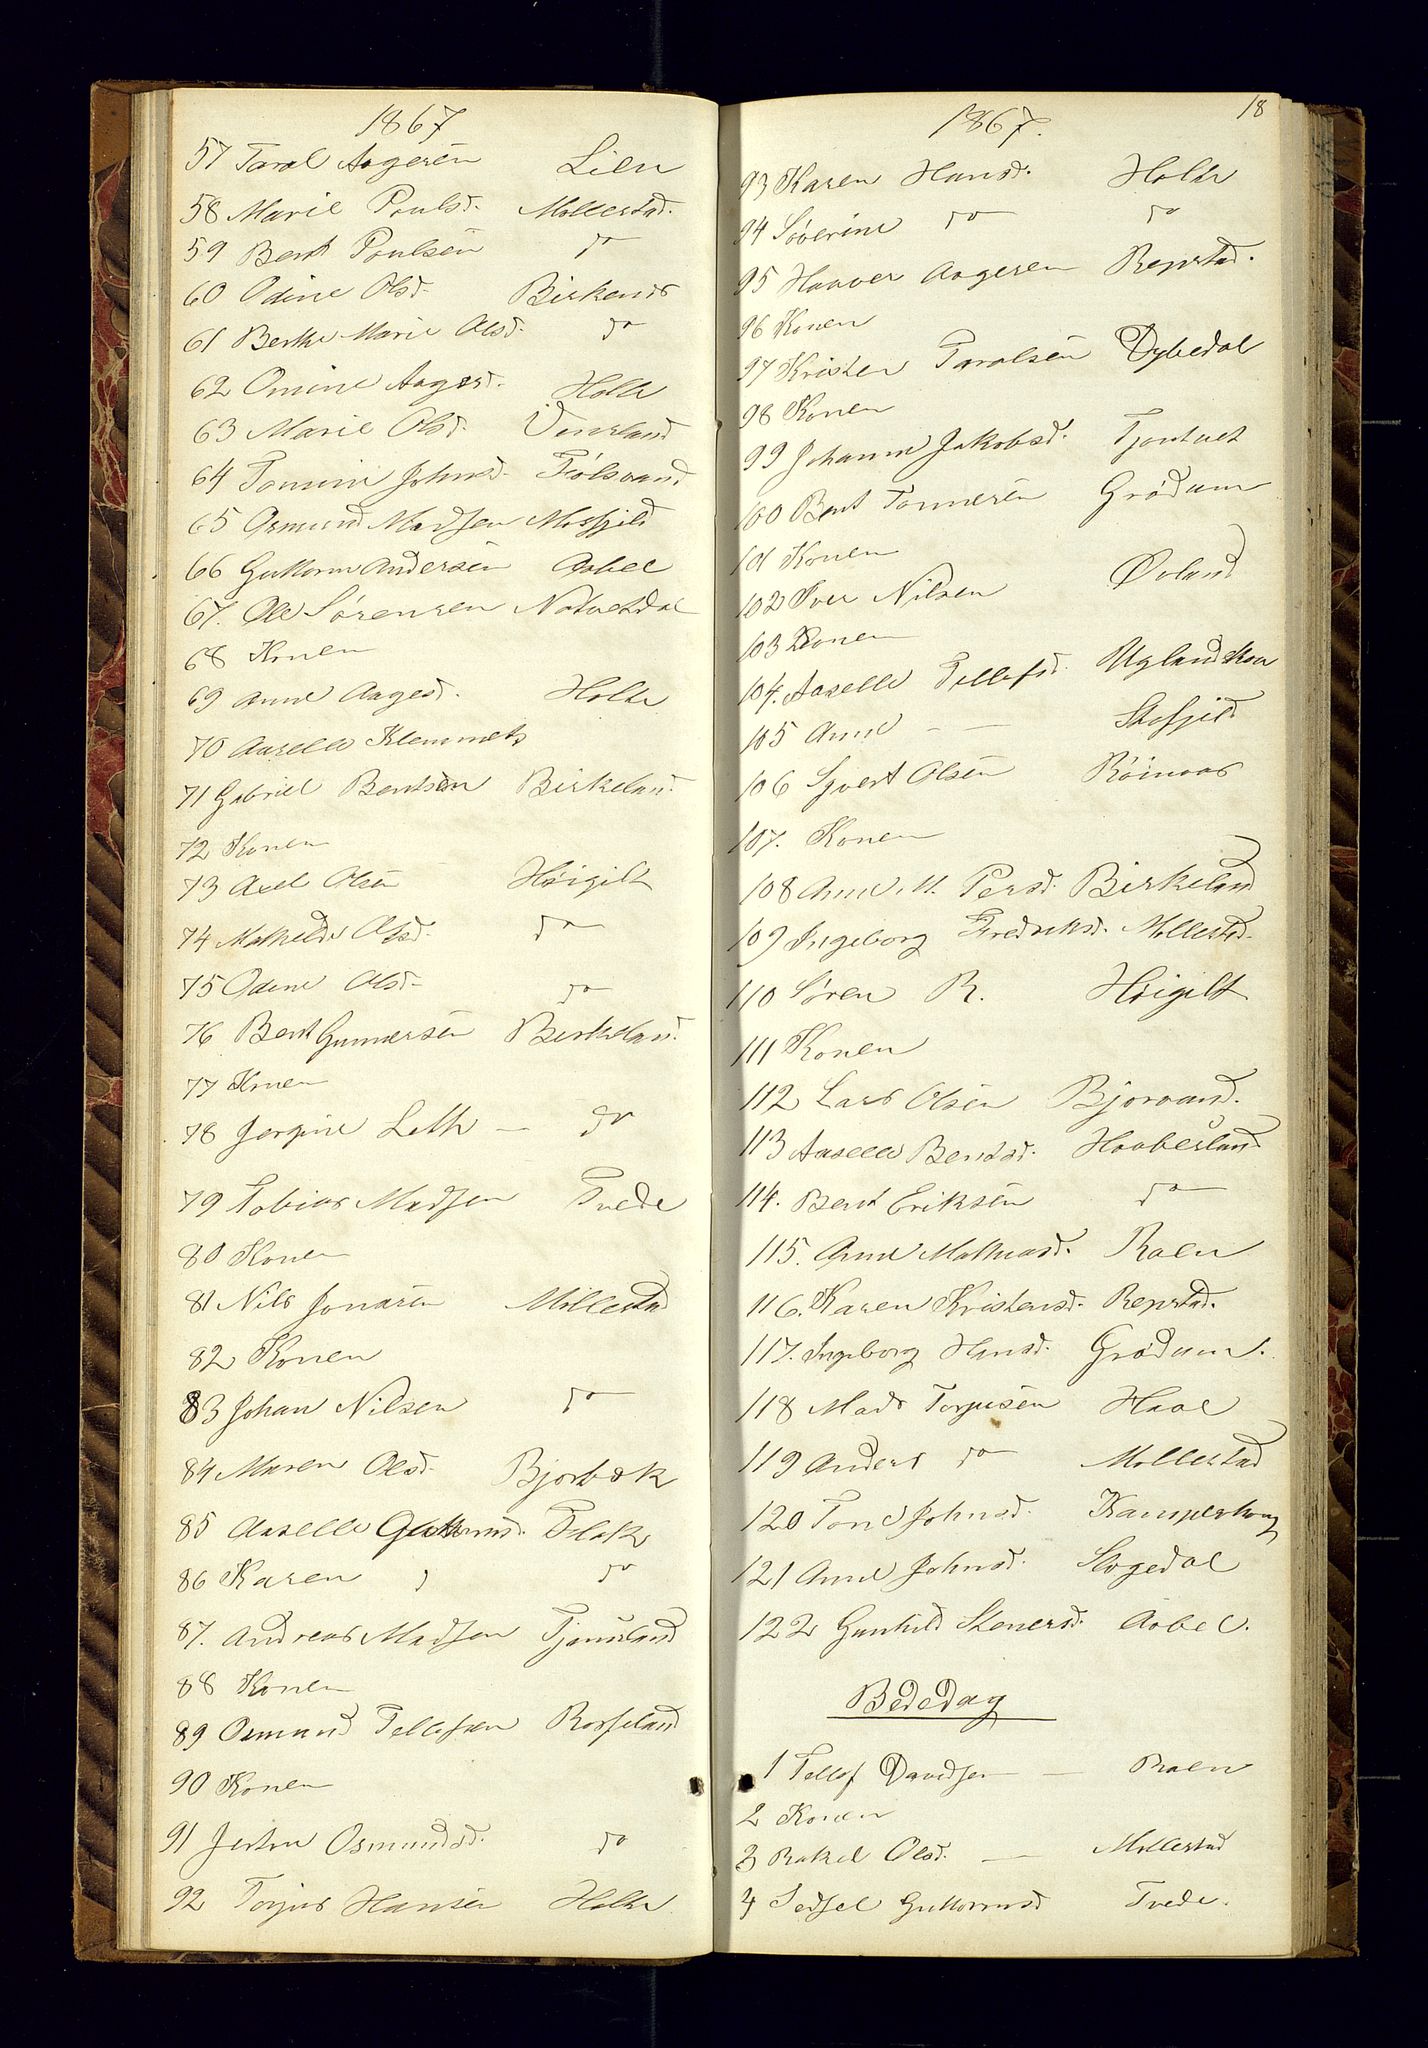 1867
57 Taral Aagesen Lien
58 Marie Poulsd. Mollestad.
59 Bent Poulsen do
60 Odine Olsd. Birkenes
61 Berthe Marie Olsd. do
62 Omine Aagesd. Holte
63 Marie Olsd. Væresland
64 Tomine Johnsd. Fiolsvand
65 Osmund Madsen Mosfjeld
66 Guttorm Andersen Aabel
67. Ole Sørensen Natvetdal
68 Konen
69 Anne Aagesd. Holte
70 Aaselle Klemmets
71 Gabriel Bentsen Birkeland
72 Konen
73 Axel Olsen Høigilt
74 Mathilde Olsd. do
75 Odine Olsd. do
76 Bent Gunnersen Birkeland.
77 Konen
78 Jorgine Leth — do
79 Tobias Madsen Tvede
80 Konen
81 Nils Jonasen Mollestad
82 Konen
83 Johan Nilsen do
84 Maren Olsd. Bjorbæk
85 Aaselle Guttormsd. Flak
86 Karen " do
87. Andreas Madsen Tjønnsland
88 Konen
89 Osmund Tellefsen Rosseland
90 Konen
91 Osmundsd. do
92 Torjus Hansen Holte
18
1867.
93 Karen Hansd. Holte
94 Søverine do do
95 Haaver Aagesen Repstad.
96 Konen
97 Kristen Taralsen Dybedal
98 Konen
99 Johanne Jakobsd. Tjontvet
100 Bent Tonnesen Grødum
101 Konen
102 Iver Nilsen Øvland
103 Konen
104. Aaselle Tellefsd. Uglandskaar
105 Anne — — Stofjeld
106 Syvert Olsen Røinaas
107. Konen
108 Anne M. Persd. Birkeland
109 Ingeborg Fredriksd. Mollestad
110 Søren R. Høigilt
111 Konen
112 Lars Olsen Bjorvand.
113 Aaselle Bentsd. Haaberland
114. Bent Eriksen do
115. Anne Mathiasd. Raen
116. Karen Kristensd. Repstad.
117. Ingeborg Hansd. Grødum.
118 Mads Torjusen Haal
119 Anders do Mollestad
120 Tone Johnsd. Kamperhaug
121 Anne Johnsd. Slogedal
122 Gunhild Stenersd. Aabel.
Bededag
1 Tellef Davidsen — Raen
2 Konen
3 Rakel Olsd. — Mollestad
4 Sidsel Guttormsd Tvede.